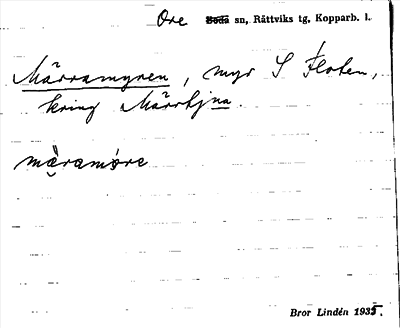 Ore Boda sn, Rättviks tg, Kopparb. l.
Märramyren, myr S Floten,
kring Märrtjna.
märamöre
Bror Lindén 1935.